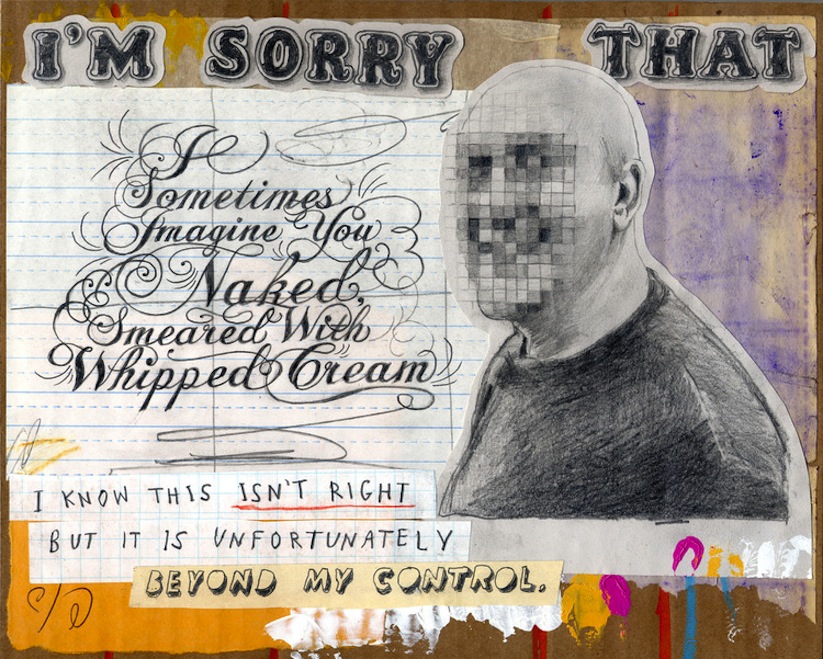 I'M SORRY THAT
I
Sometimes
Imagine You
Naked,
Smeared With
Whipped Cream
I KNOW THIS ISN'T RIGHT
BUT IT IS UNFORTUNATELY
BEYOND MY CONTROL.